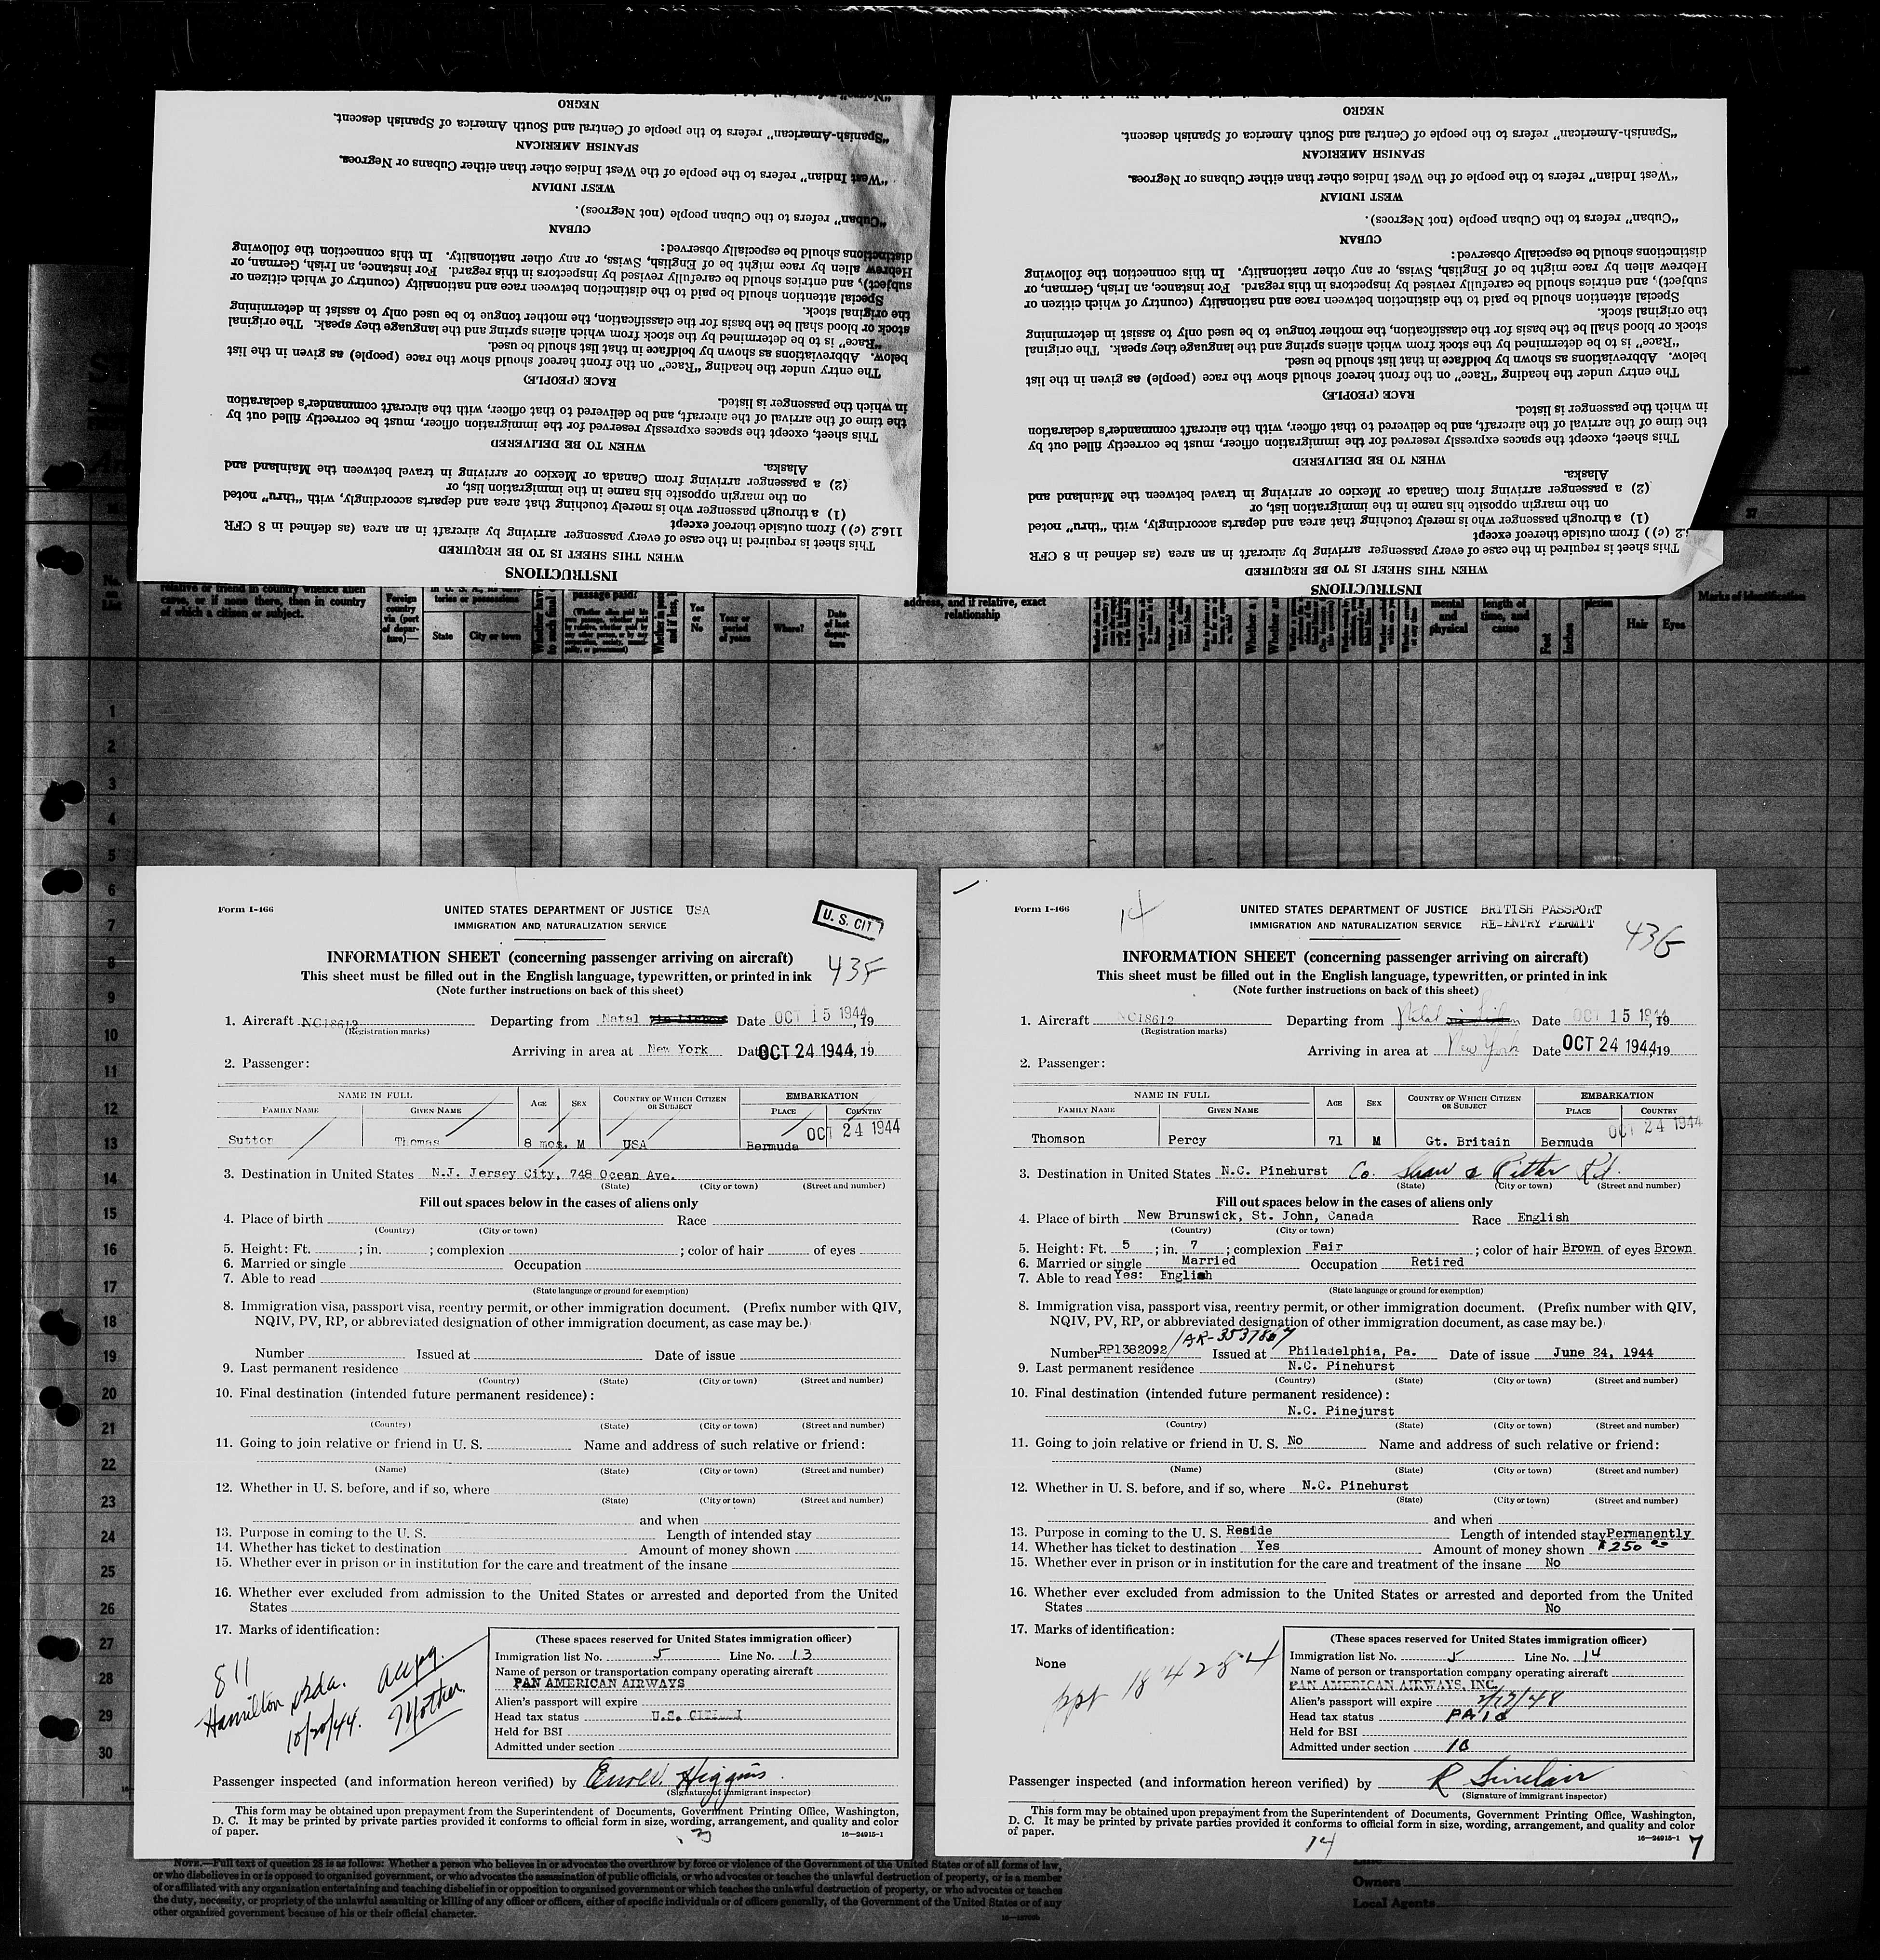 NEGRO
"Spanish-American" refers to the people of Central and South America of Spanish descent.
SPANISH AMERICAN
"West Indian" refers to the people of the West Indies other than either Cubans or Negroes.
WEST INDIAN
"Cuban" refers to the Cuban people (not Negroes).
CUBAN
distinctions should be especially observed:
Hebrew alien by race might be of English, Swiss, or any other nationality. In this connection the following
subject), and entries should be carefully revised by inspectors in this regard. For instance, an Irish, German, or
Special attention should be paid to the distinction between race and nationality (country of which citizen or
the original stock.
stock or blood shall be the basis for the classification, the mother tongue to be used only to assist in determining
"Race" is to be determined by the stock from which aliens spring and the language they speak. The original
below. Abbreviations as shown by boldface in that list should be used.
The entry under the heading "Race" on the front hereof should show the race (people) as given in the list
RACE (PEOPLE)
in which the passenger is listed.
the time of the arrival of the aircraft, and be delivered to that officer, with the aircraft commander's declaration
This sheet, except the spaces expressly reserved for the immigration officer, must be correctly filled out by
WHEN TO BE DELIVERED
Alaska.
(2) a passenger arriving from Canada or Mexico or arriving in travel between the Mainland and
on the margin opposite his name in the immigration list, or
(1) a through passenger who is merely touching that area and departs accordingly, with "thru" noted
116.2 (c)) from outside thereof except
This sheet is required in the case of every passenger arriving by aircraft in an area (as defined in 8 CFR
WHEN THIS SHEET IS TO BE REQUIRED
INSTRUCTIONS
NEGRO
"Spanish-American" refers to the people of Central and South America of Spanish descent.
SPANISH AMERICAN
"West Indian" refers to the people of the West Indies other than either Cubans or Negroes.
WEST INDIAN
"Cuban" refers to the Cuban people (not Negroes).
CUBAN
distinctions should be especially observed:
Hebrew alien by race might be of English, Swiss, or any other nationality. In this connection the following
subject), and entries should be carefully revised by inspectors in this regard. For instance, an Irish, German, or
Special attention should be paid to the distinction between race and nationality (country of which citizen or
the original stock.
stock or blood shall be the basis for the classification, the mother tongue to be used only to assist in determining
"Race" is to be determined by the stock from which aliens spring and the language they speak. The original
below. Abbreviations as shown by boldface in that list should be used.
The entry under the heading "Race" on the front hereof should show the race (people) as given in the list
RACE (PEOPLE)
in which the passenger is listed.
the time of the arrival of the aircraft, and be delivered to that officer, with the aircraft commander's declaration
This sheet, except the spaces expressly reserved for the immigration officer, must be correctly filled out by
WHEN TO BE DELIVERED
Alaska.
(2) a passenger arriving from Canada or Mexico or arriving in travel between the Mainland and
on the margin opposite his name in the immigration list, or
(1) a through passenger who is merely touching that area and departs accordingly, with "thru" noted
.2 (c)) from outside thereof except
This sheet is required in the case of every passenger arriving by aircraft in an area (as defined in 8 CFR
WHEN THIS SHEET IS TO BE REQUIRED
INSTRUCTIONS
relative or friend in country whence alien
came, or if none there, then in country
of which a citizen or subject.
Foreign country via (port of departure)—
State City or town
passage paid?
Yes or No
Year or period of years
Where?
Date of last departure
address, and if relative, exact
relationship
mental and physical
length of time, and cause
Feet Inches
Hair Eyes
Marks of identification
1
2
3
4
5
6
7
8
9
10
11
12
13
14
15
16
17
18
19
20
21
22
23
24
25
26
27
28
29
30
Form I-466
UNITED STATES DEPARTMENT OF JUSTICE USA
IMMIGRATION AND NATURALIZATION SERVICE
U. S. CIT
43F
INFORMATION SHEET (concerning passenger arriving on aircraft)
This sheet must be filled out in the English language, typewritten, or printed in ink
(Note further instructions on back of this sheet)
1. Aircraft NC18612 Departing from Natal via Lisbon Date OCT 15 1944, 19
(Registration marks)
Arriving in area at New York Date OCT 24 1944, 19
2. Passenger:
NAME IN FULL AGE SEX COUNTRY OF WHICH CITIZEN OR SUBJECT EMBARKATION
FAMILY NAME GIVEN NAME PLACE COUNTRY
Sutton Thomas 8 mos. M USA Bermuda OCT 24 1944
3. Destination in United States N.J. Jersey City, 748 Ocean Ave.
(State) (City or town) (Street and number)
Fill out spaces below in the cases of aliens only
4. Place of birth Race
(Country) (City or town)
5. Height: Ft. ; in. ; complexion ; color of hair of eyes
6. Married or single Occupation
7. Able to read
(State language or ground for exemption)
8. Immigration visa, passport visa, reentry permit, or other immigration document. (Prefix number with QIV,
NQIV, PV, RP, or abbreviated designation of other immigration document, as case may be.)
Number Issued at Date of issue
9. Last permanent residence
(Country) (State) (City or town) (Street and number)
10. Final destination (intended future permanent residence):
(Country) (State) (City or town) (Street and number)
11. Going to join relative or friend in U. S. Name and address of such relative or friend:
(Name) (State) (City or town) (Street and number)
12. Whether in U. S. before, and if so, where
(State) (City or town) (Street and number)
and when
13. Purpose in coming to the U. S. Length of intended stay
14. Whether has ticket to destination Amount of money shown
15. Whether ever in prison or in institution for the care and treatment of the insane
16. Whether ever excluded from admission to the United States or arrested and deported from the United
States
17. Marks of identification:
811
Hamilton Bda.
10/20/44.
accpg.
Mother.
(These spaces reserved for United States immigration officer)
Immigration list No. 5 Line No. 13
Name of person or transportation company operating aircraft
PAN AMERICAN AIRWAYS
Alien's passport will expire
Head tax status U.S. CITIZEN
Held for BSI
Admitted under section
Passenger inspected (and information hereon verified) by Higgins
(Signature of immigrant inspector)
This form may be obtained upon prepayment from the Superintendent of Documents, Government Printing Office, Washington,
D. C. It may be printed by private parties provided it conforms to official form in size, wording, arrangement, and quality and color
of paper. 16—24915-1
Form I-466
14
UNITED STATES DEPARTMENT OF JUSTICE BRITISH PASSPORT
IMMIGRATION AND NATURALIZATION SERVICE RE-ENTRY PERMIT
43G
INFORMATION SHEET (concerning passenger arriving on aircraft)
This sheet must be filled out in the English language, typewritten, or printed in ink
(Note further instructions on back of this sheet)
1. Aircraft NC18612 Departing from Natal Date OCT 15 1944, 19
(Registration marks)
Arriving in area at New York Date OCT 24 1944, 19
2. Passenger:
NAME IN FULL AGE SEX COUNTRY OF WHICH CITIZEN OR SUBJECT EMBARKATION
FAMILY NAME GIVEN NAME PLACE COUNTRY
Thomson Percy 71 M Gt. Britain Bermuda OCT 24 1944
3. Destination in United States N.C. Pinehurst Co. Shaw & Ritter Rd.
(State) (City or town) (Street and number)
Fill out spaces below in the cases of aliens only
4. Place of birth New Brunswick, St. John, Canada Race English
(Country) (City or town)
5. Height: Ft. 5 ; in. 7 ; complexion Fair ; color of hair Brown of eyes Brown
6. Married or single Married Occupation Retired
7. Able to read Yes: English
(State language or ground for exemption)
8. Immigration visa, passport visa, reentry permit, or other immigration document. (Prefix number with QIV,
NQIV, PV, RP, or abbreviated designation of other immigration document, as case may be.)
Number RP1382092/AR-3537867 Issued at Philadelphia, Pa. Date of issue June 24, 1944
9. Last permanent residence N.C. Pinehurst
(Country) (State) (City or town) (Street and number)
10. Final destination (intended future permanent residence):
N.C. Pinejurst
(Country) (State) (City or town) (Street and number)
11. Going to join relative or friend in U. S. No Name and address of such relative or friend:
(Name) (State) (City or town) (Street and number)
12. Whether in U. S. before, and if so, where N.C. Pinehurst
(State) (City or town) (Street and number)
and when
13. Purpose in coming to the U. S. Reside Length of intended stay Permanently
14. Whether has ticket to destination Yes Amount of money shown $250 00
15. Whether ever in prison or in institution for the care and treatment of the insane No
16. Whether ever excluded from admission to the United States or arrested and deported from the United
States No
17. Marks of identification:
None
ppt 184284
(These spaces reserved for United States immigration officer)
Immigration list No. 5 Line No. 14
Name of person or transportation company operating aircraft
PAN AMERICAN AIRWAYS, INC.
Alien's passport will expire 2/13/48
Head tax status PAId
Held for BSI
Admitted under section 10
Passenger inspected (and information hereon verified) by R Sinclair
(Signature of immigrant inspector)
This form may be obtained upon prepayment from the Superintendent of Documents, Government Printing Office, Washington,
D. C. It may be printed by private parties provided it conforms to official form in size, wording, arrangement, and quality and color
of paper. 16—24915-1
14
7
NOTE.—Full text of question 28 is as follows: Whether a person who believes in or advocates the overthrow by force or violence of the Government of the United States or of all forms of law,
or who disbelieves in or is opposed to organized government, or who advocates the assassination of public officials, or who advocates or teaches the unlawful destruction of property, or is a member
of or affiliated with any organization entertaining and teaching disbelief in or opposition to organized government or which teaches the unlawful destruction of property, or who advocates or teaches
the duty, necessity, or propriety of the unlawful assaulting or killing of any officer or officers, either of specific individuals or of officers generally, of the Government of the United States or of any
other organized government because of his or their official character.
Owners
Local Agents